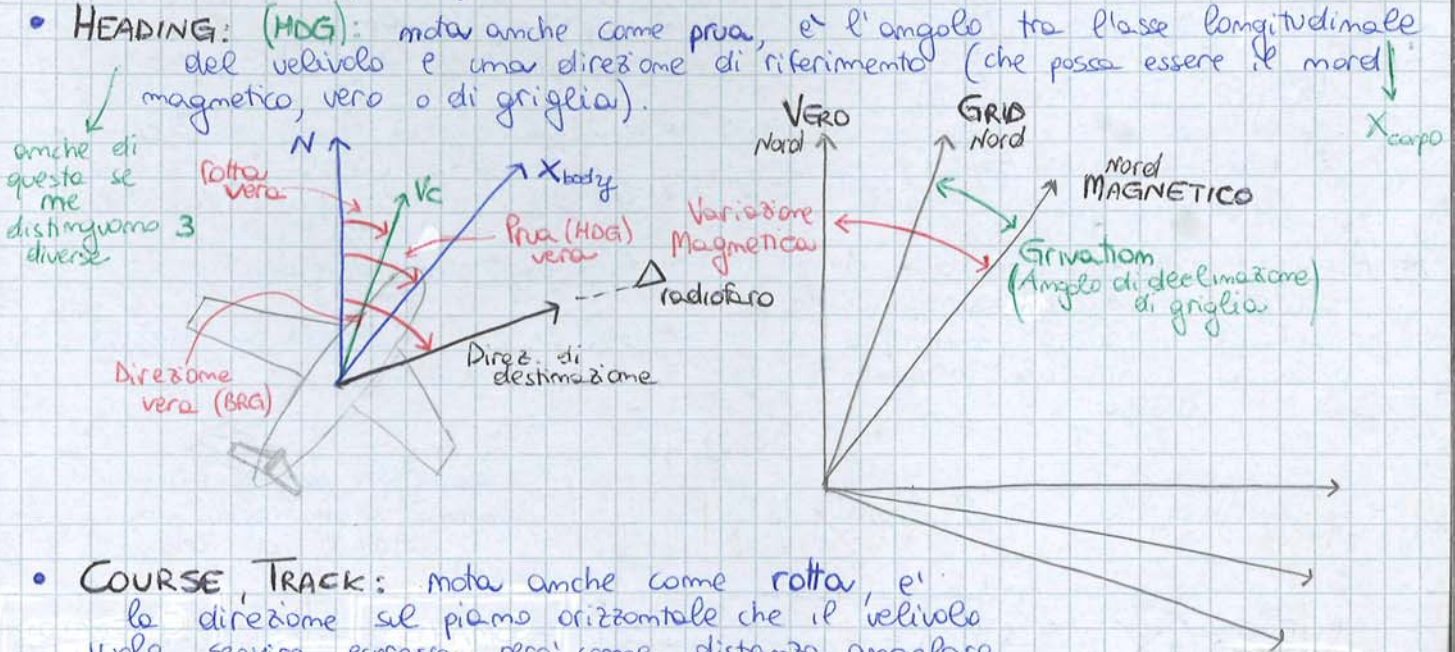 • HEADING: (HDG): nota anche come prua, e' l'angolo tra l'asse longitudinale
del velivolo e una direzione di riferimento (che possa essere il nord
magnetico, vero o di griglia).
Xcorpo
anche di
questa se
ne
distinguono 3
diverse
N
rotta
vera
Vc
Xbody
Prua (HDG)
vera
radiofaro
Direz. di
destinazione
Direzione
vera (BRG)
VERO
Nord
GRID
Nord
Nord
MAGNETICO
Variazione
Magnetica
Grivation
(Angolo di declinazione)
di griglia
• COURSE, TRACK: nota anche come rotta, e'
la direzione sul piano orizzontale che il velivolo